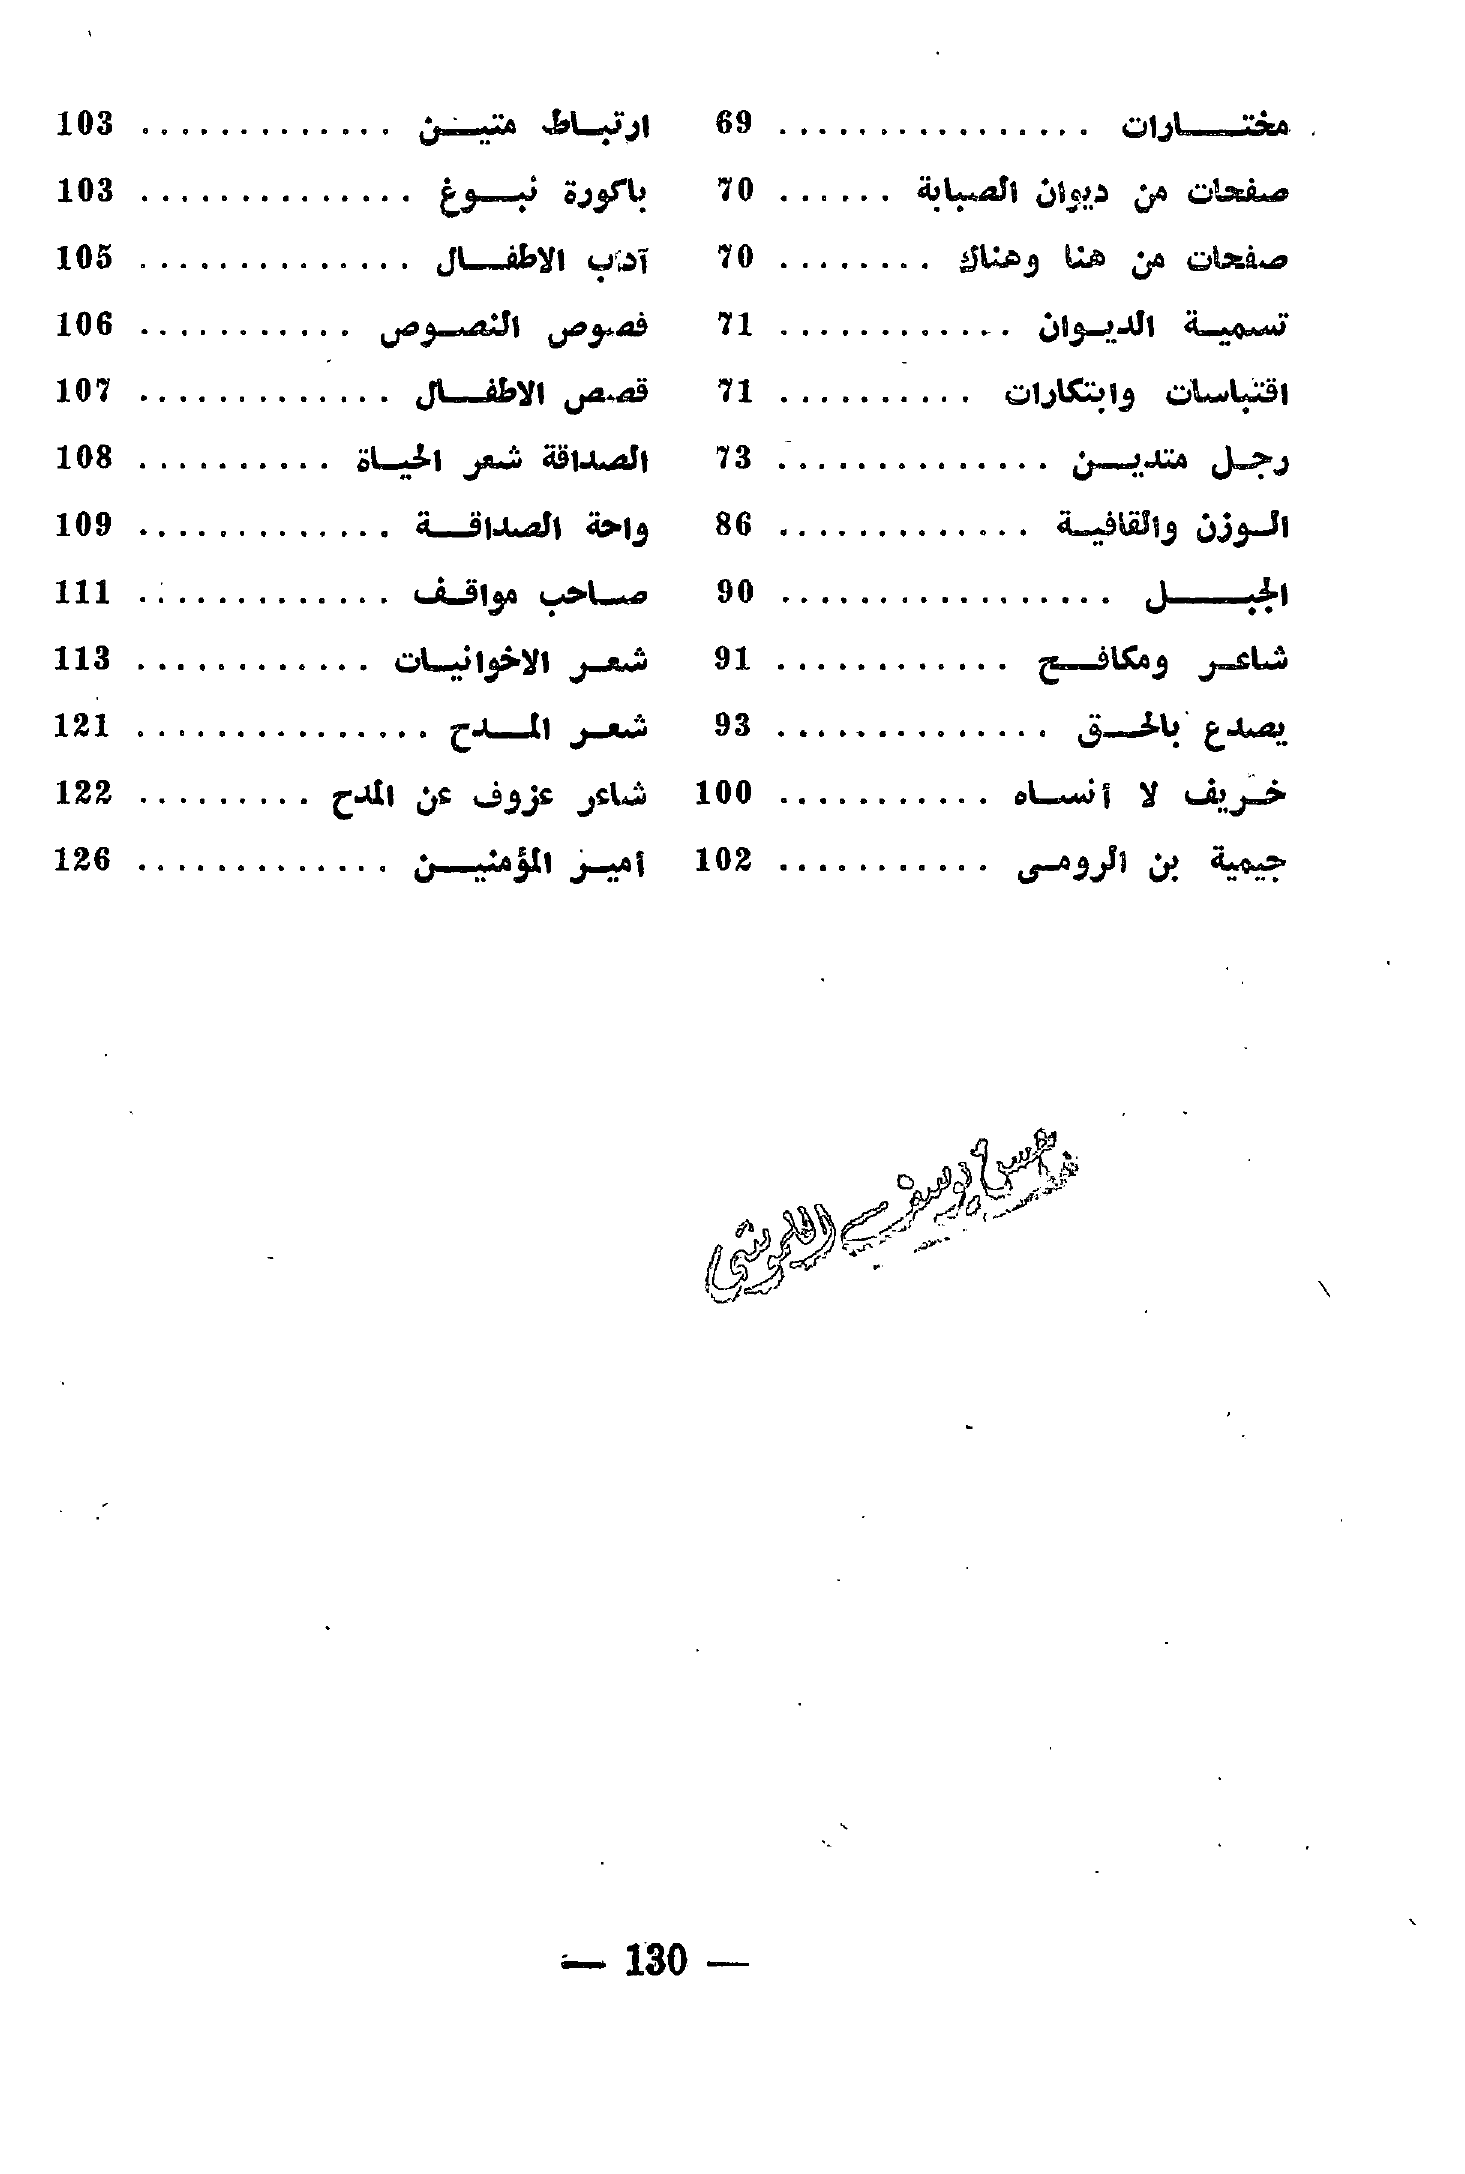 مختارات ................ 69
صفحات من ديوان الصبابة ...... 70
صفحات من هنا وهناك ........ 70
تسمية الديوان ............ 71
اقتباسات وابتكارات .......... 71
رجل متدين .............. 73
الوزن والقافية ............. 86
الجبل ................. 90
شاعر ومكافح ............ 91
يصدع بالحق .............. 93
خريف لا أنساه ........... 100
جيمية بن الرومى ........... 102
ارتباط متين ............. 103
باكورة نبوغ .............. 103
آداب الاطفال .............. 105
فصوص النصوص ........... 106
قصص الاطفال ............. 107
الصداقة شعر الحياة .......... 108
واحة الصداقة ............. 109
صاحب مواقف ............. 111
شعر الاخوانيات ............ 113
شعر المدح ............... 121
شاعر عزوف عن المدح ......... 122
أمير المؤمنين ............. 126
— 130 —